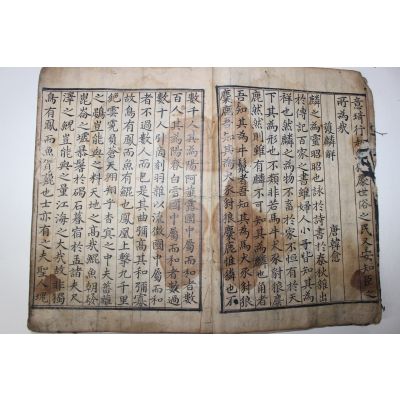 意琦行處世俗之民又安知臣之
所為哉
獲麟解
唐韓愈
麟之為靈昭昭也詠於詩書於春秋雜出
於傳記百家之書雖婦人小子皆知其為
祥也然麟之為物不畜於家不恒有於天
下其為形也不類非若馬牛犬豕豺狼麋
鹿然然則雖有麟不可知其為麟也角者
吾知其為牛鬣者吾知其為馬犬豕豺狼
麋鹿吾知其為犬豕豺狼麋鹿惟麟也不
數千人其為陽阿薤露國中屬而和者數
百人其為陽春白雪國中屬而和者數過
數十人引商刻羽雜以流徵國中屬而和
者不過數人而已是其曲彌高其和彌寡
故鳥有鳳而魚有鯤也鳳凰上擊九千里
絕雲霓負蒼天翱翔乎杳冥之中夫藩籬
之鷃豈能與之料天地之高哉鯤魚朝發
崑崙之墟暴鬐於碣石暮宿於孟諸夫尺
澤之鯢豈能與之量江海之大哉故非獨
鳥有鳳而魚有鯤也士亦有之夫聖人瑰